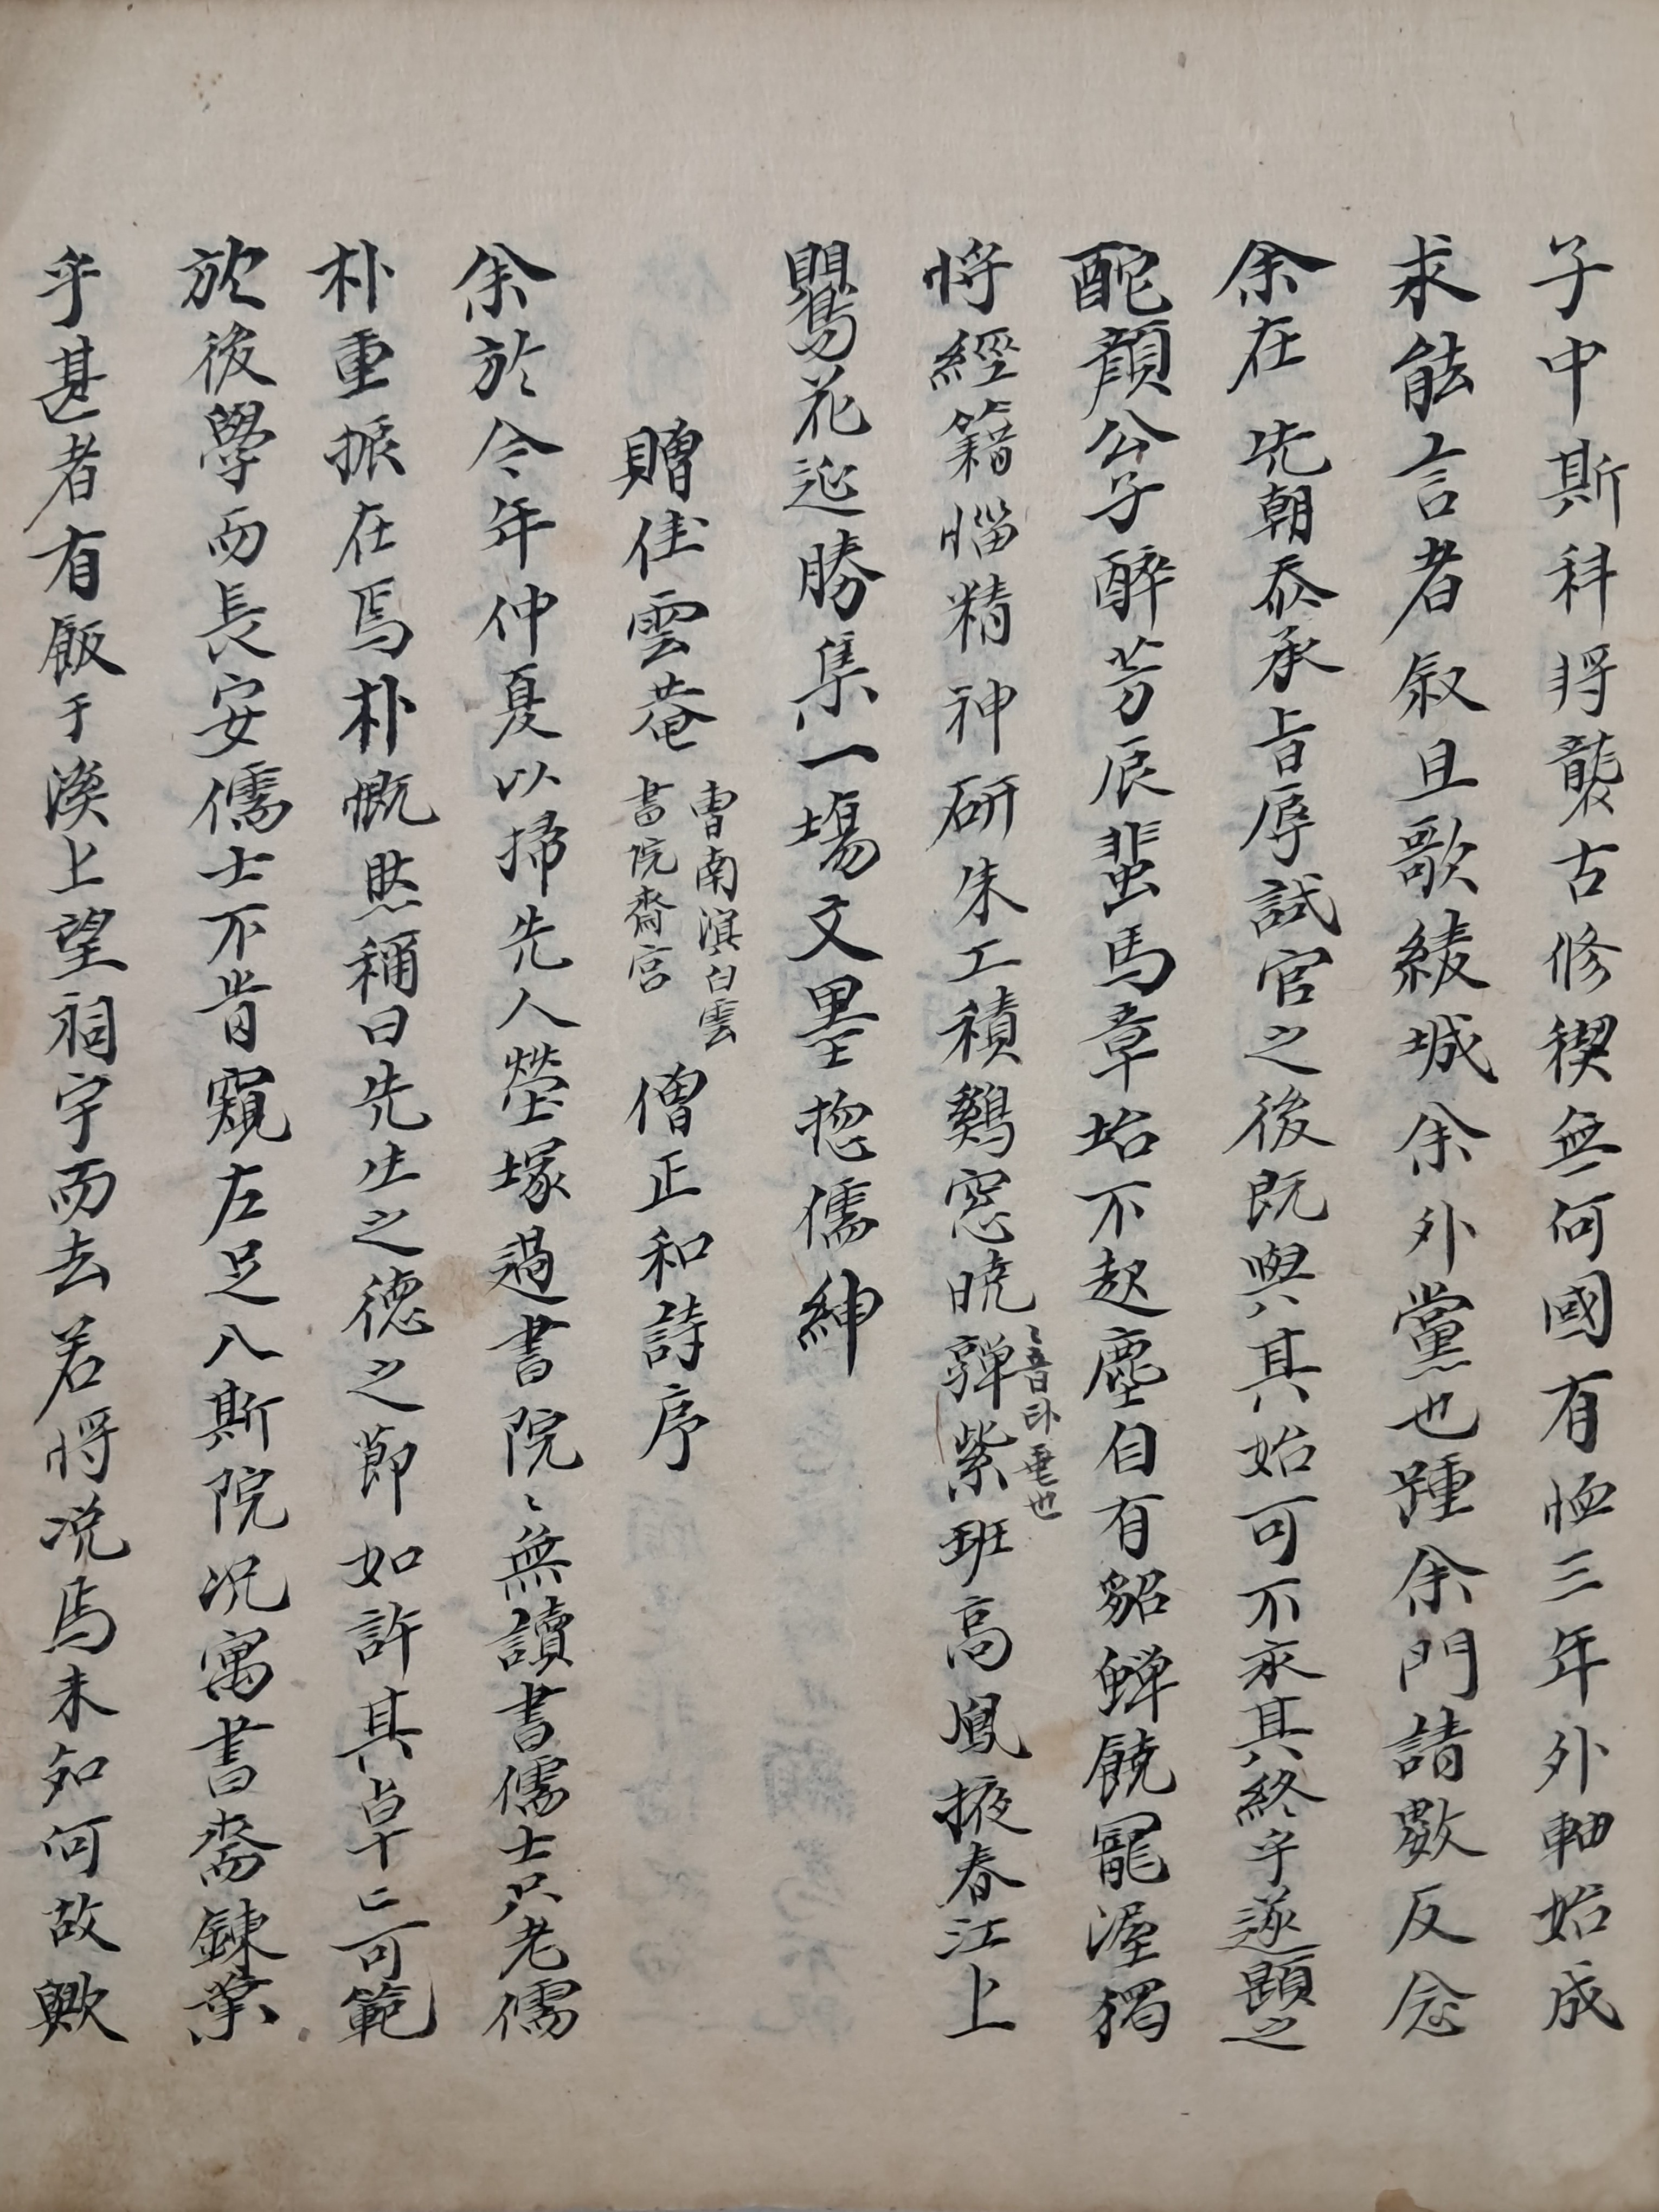 子中斯科將襲古修稧無何國有恤三年外軸始成
求能言者叙且歌綾城余外黨也踵余門請數反念
余在 先朝忝承旨辱試官之後既與其始可不永其終乎遂題之
酡顔公子醉芳辰蜚馬章坮不起塵自有貂蟬餙寵渥獨
將經籍惱精神研朱工積鷄窓晩嚲紫班高鳳掖春江上
鸎花迎勝集一塲文墨揔儒紳
嚲音卧垂也
贈住雲菴
曺南溟白雲
書院齋宮
僧正和詩序
余於今年仲夏以掃先人塋塚過書院〻無讀書儒士只老儒
朴重振在焉朴慨然稱曰先生之德之節如許其卓〻可範
於後學而長安儒士不肯窺左足入斯院况寓書齋鍊業
乎甚者有飯于溪上望祠宇而去若將浼焉未知何故歟